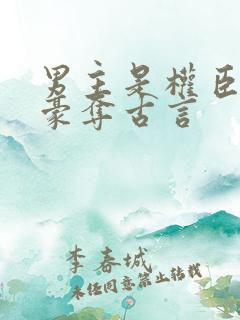 男主是權臣
豪奪古言
李春城
未经同意禁止转载